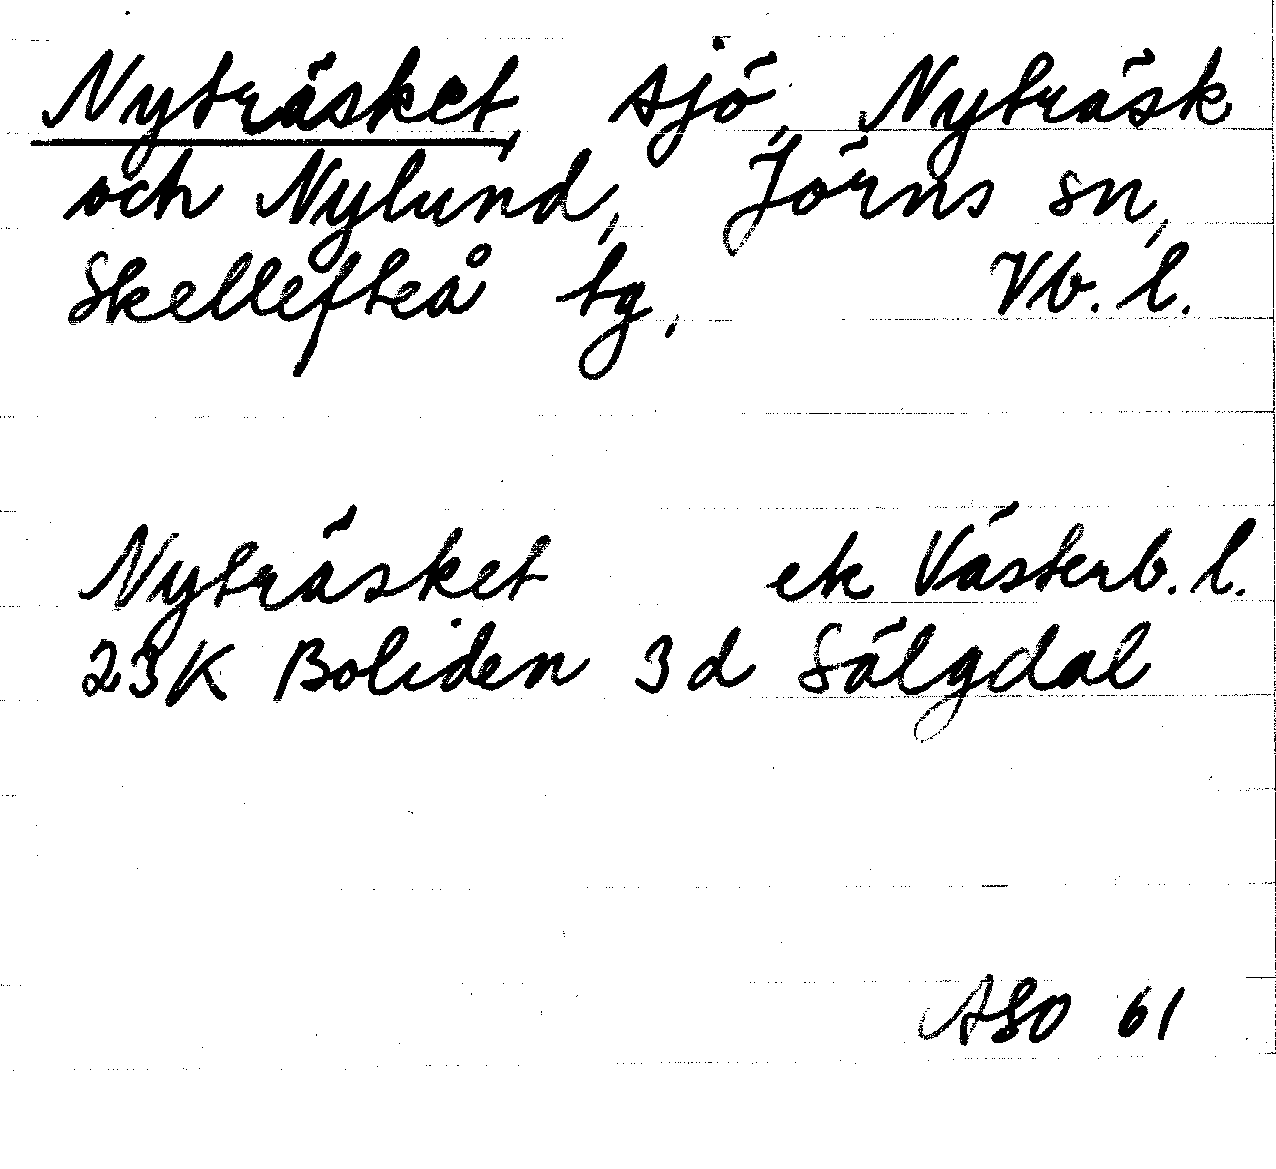 Nyträsket, sjö, Nyträsk
och Nylund, Jörns sn,
Skellefteå tg, Vb. l.
Nyträsket ek Västerb. l.
23K Boliden 3 d Sälgdal
ASO 61